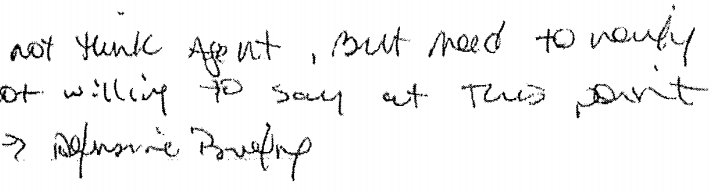 not think Agent, But need to verify
ot willing to say at this point
→ Defensive Briefing